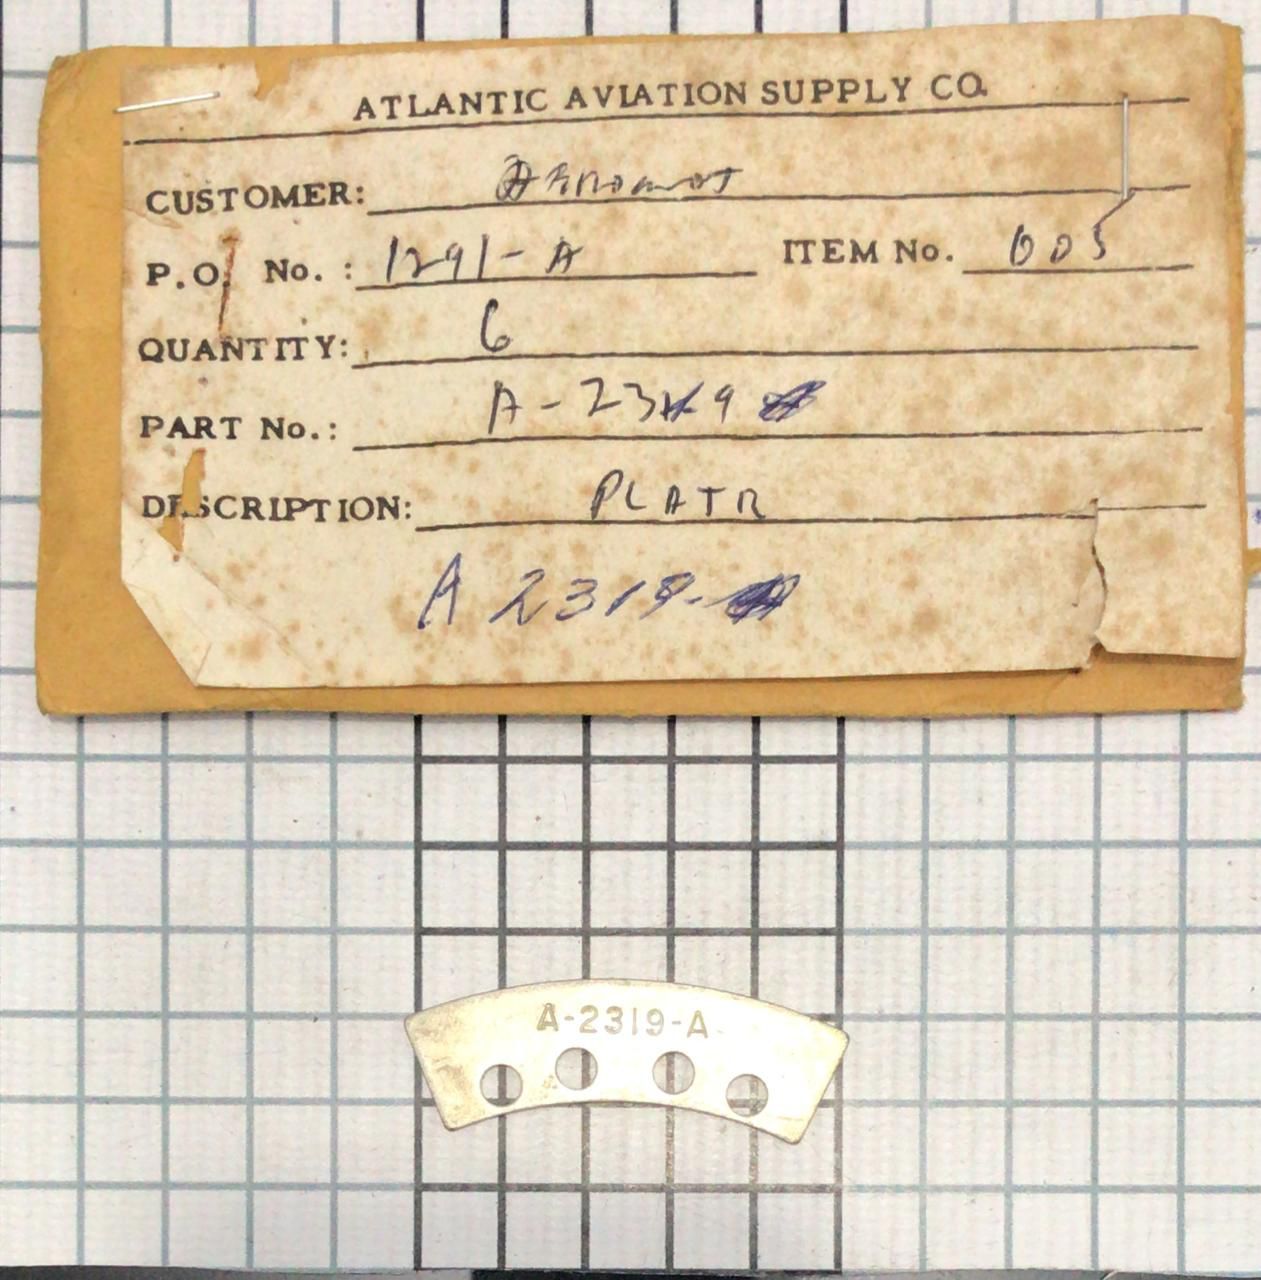 ATLANTIC AVIATION SUPPLY CO.
CUSTOMER:
P.O. No. : 1291-A ITEM No. 005
QUANTITY: 6
PART No.: A-2319
DESCRIPTION: PLATE
A 2319-
A-2319-A